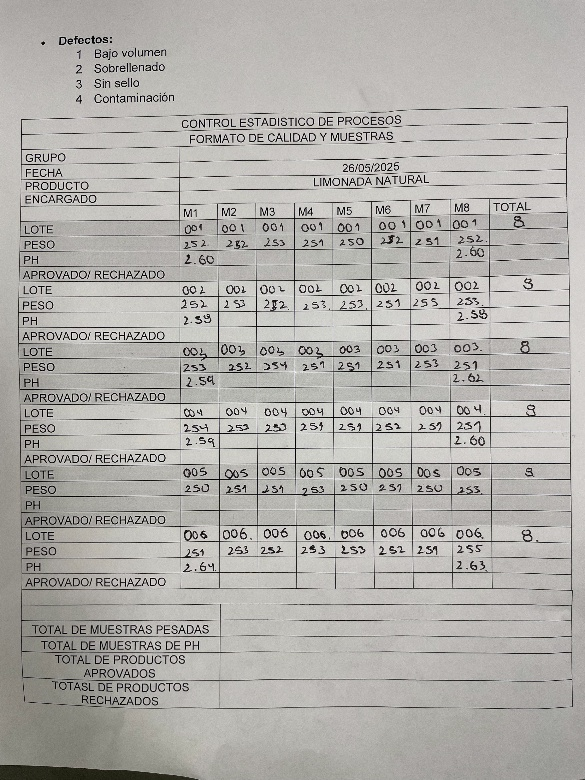 • Defectos:
1 Bajo volumen
2 Sobrellenado
3 Sin sello
4 Contaminación
CONTROL ESTADISTICO DE PROCESOS
FORMATO DE CALIDAD Y MUESTRAS
GRUPO
FECHA 26/05/2025
PRODUCTO LIMONADA NATURAL
ENCARGADO
M1 M2 M3 M4 M5 M6 M7 M8 TOTAL
LOTE 001 001 001 001 001 001 001 001 8
PESO 252 252 253 251 250 252 251 252.
PH 2.60 2.60
APROVADO/ RECHAZADO
LOTE 002 002 002 002 002 002 002 002 8
PESO 252 253 252 253. 253. 251 255 253.
PH 2.58
APROVADO/ RECHAZADO
LOTE 003 003 003 003 003 003 003 003. 8
PESO 253 252 254 251 251 251 253 251
PH 2.59 2.62
APROVADO/ RECHAZADO
LOTE 004 004 004 004 004 004 004 004. 8
PESO 254 253 253 251 251 252 251 251
PH 2.59 2.60
APROVADO/ RECHAZADO
LOTE 005 005 005 005 005 005 005 005 8
PESO 250 251 251 253 250 251 250 253.
PH
APROVADO/ RECHAZADO
LOTE 006 006. 006 006. 006 006 006 006. 8.
PESO 251 253 252 253 253 252 251 255
PH 2.64 2.63.
APROVADO/ RECHAZADO
TOTAL DE MUESTRAS PESADAS
TOTAL DE MUESTRAS DE PH
TOTAL DE PRODUCTOS
APROVADOS
TOTASL DE PRODUCTOS
RECHAZADOS